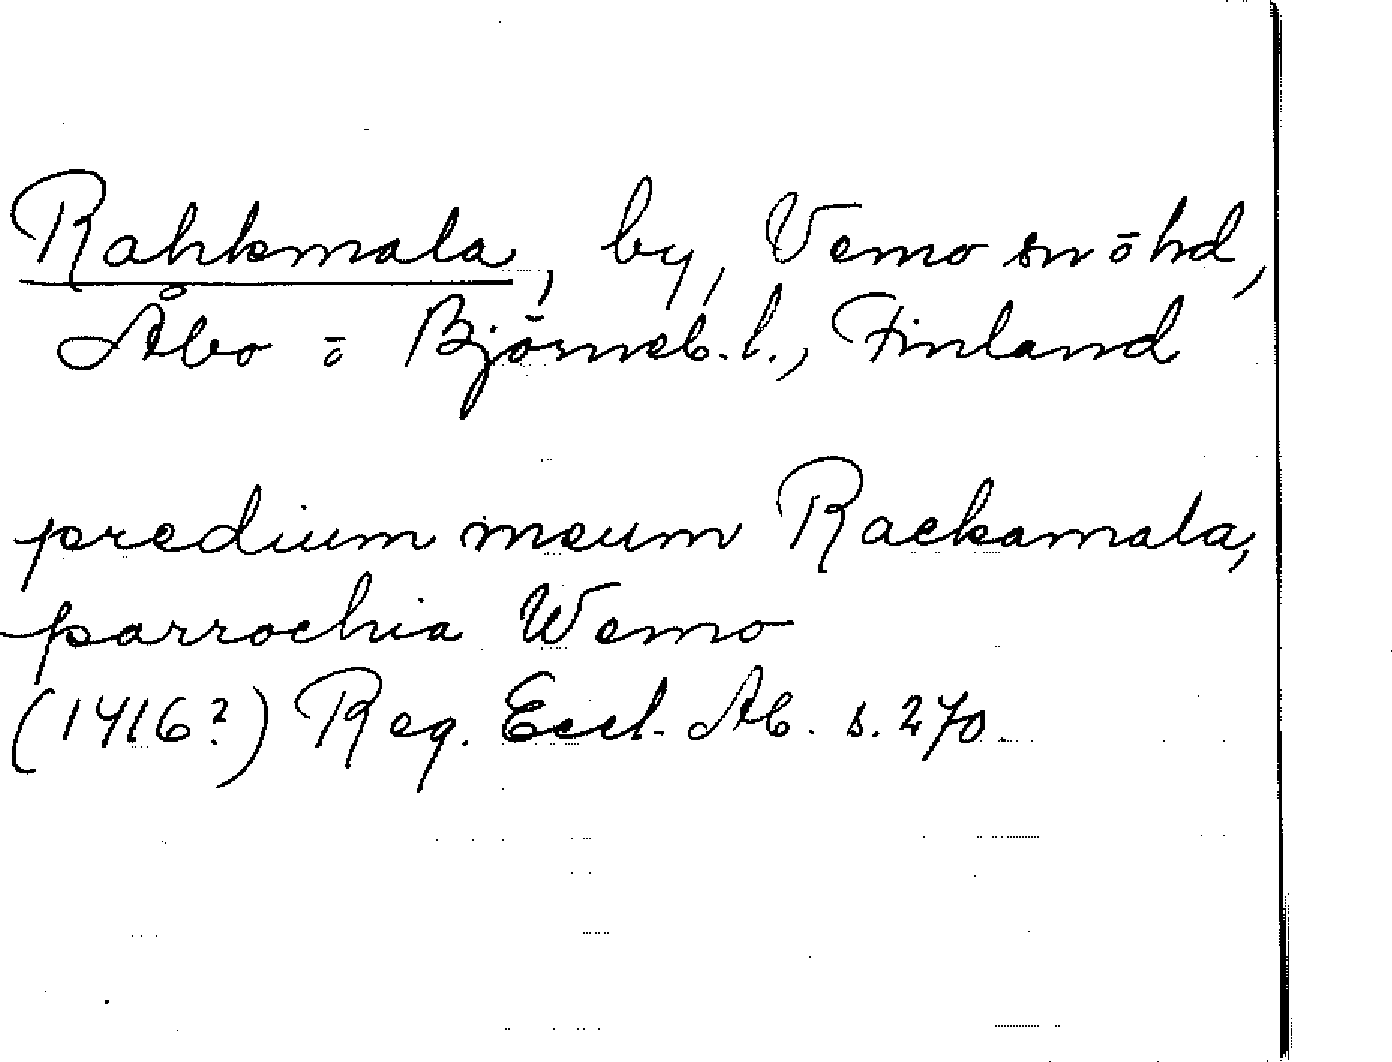 Rahkmala, by, Vemo sn o hd,
Åbo o Björneb. l., Finland
predium meum Rackamala,
parrochia Wemo
(1416?) Reg. Eccl. Ab. s. 270